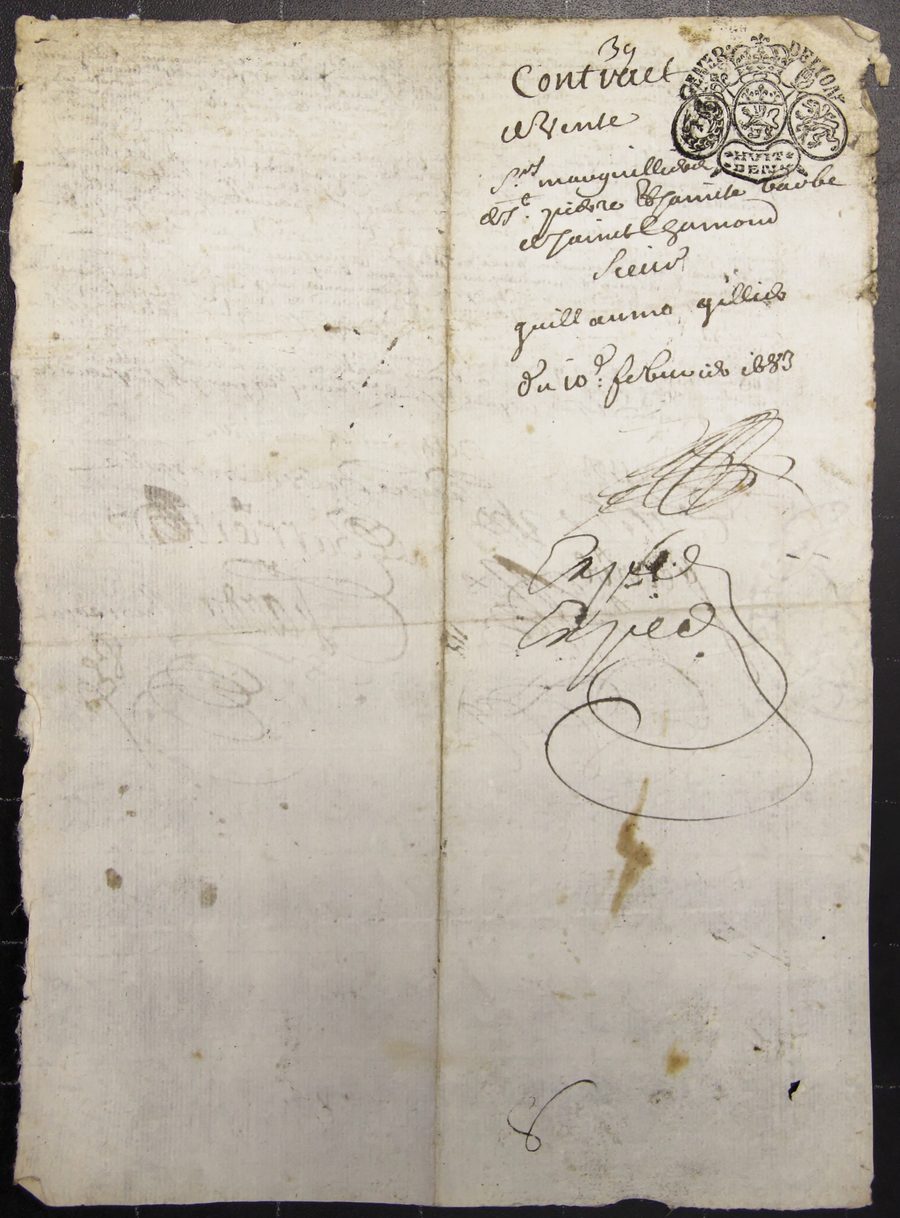 39
Contract
de Vente
Srs marguilliers
de St. pierre & sainte barbe
de saint Chamond
Sieur
guillaume gillier
Du 10e. febvrier 1683
GENER DE LYON
HUIT
DEN
Exped
Exped